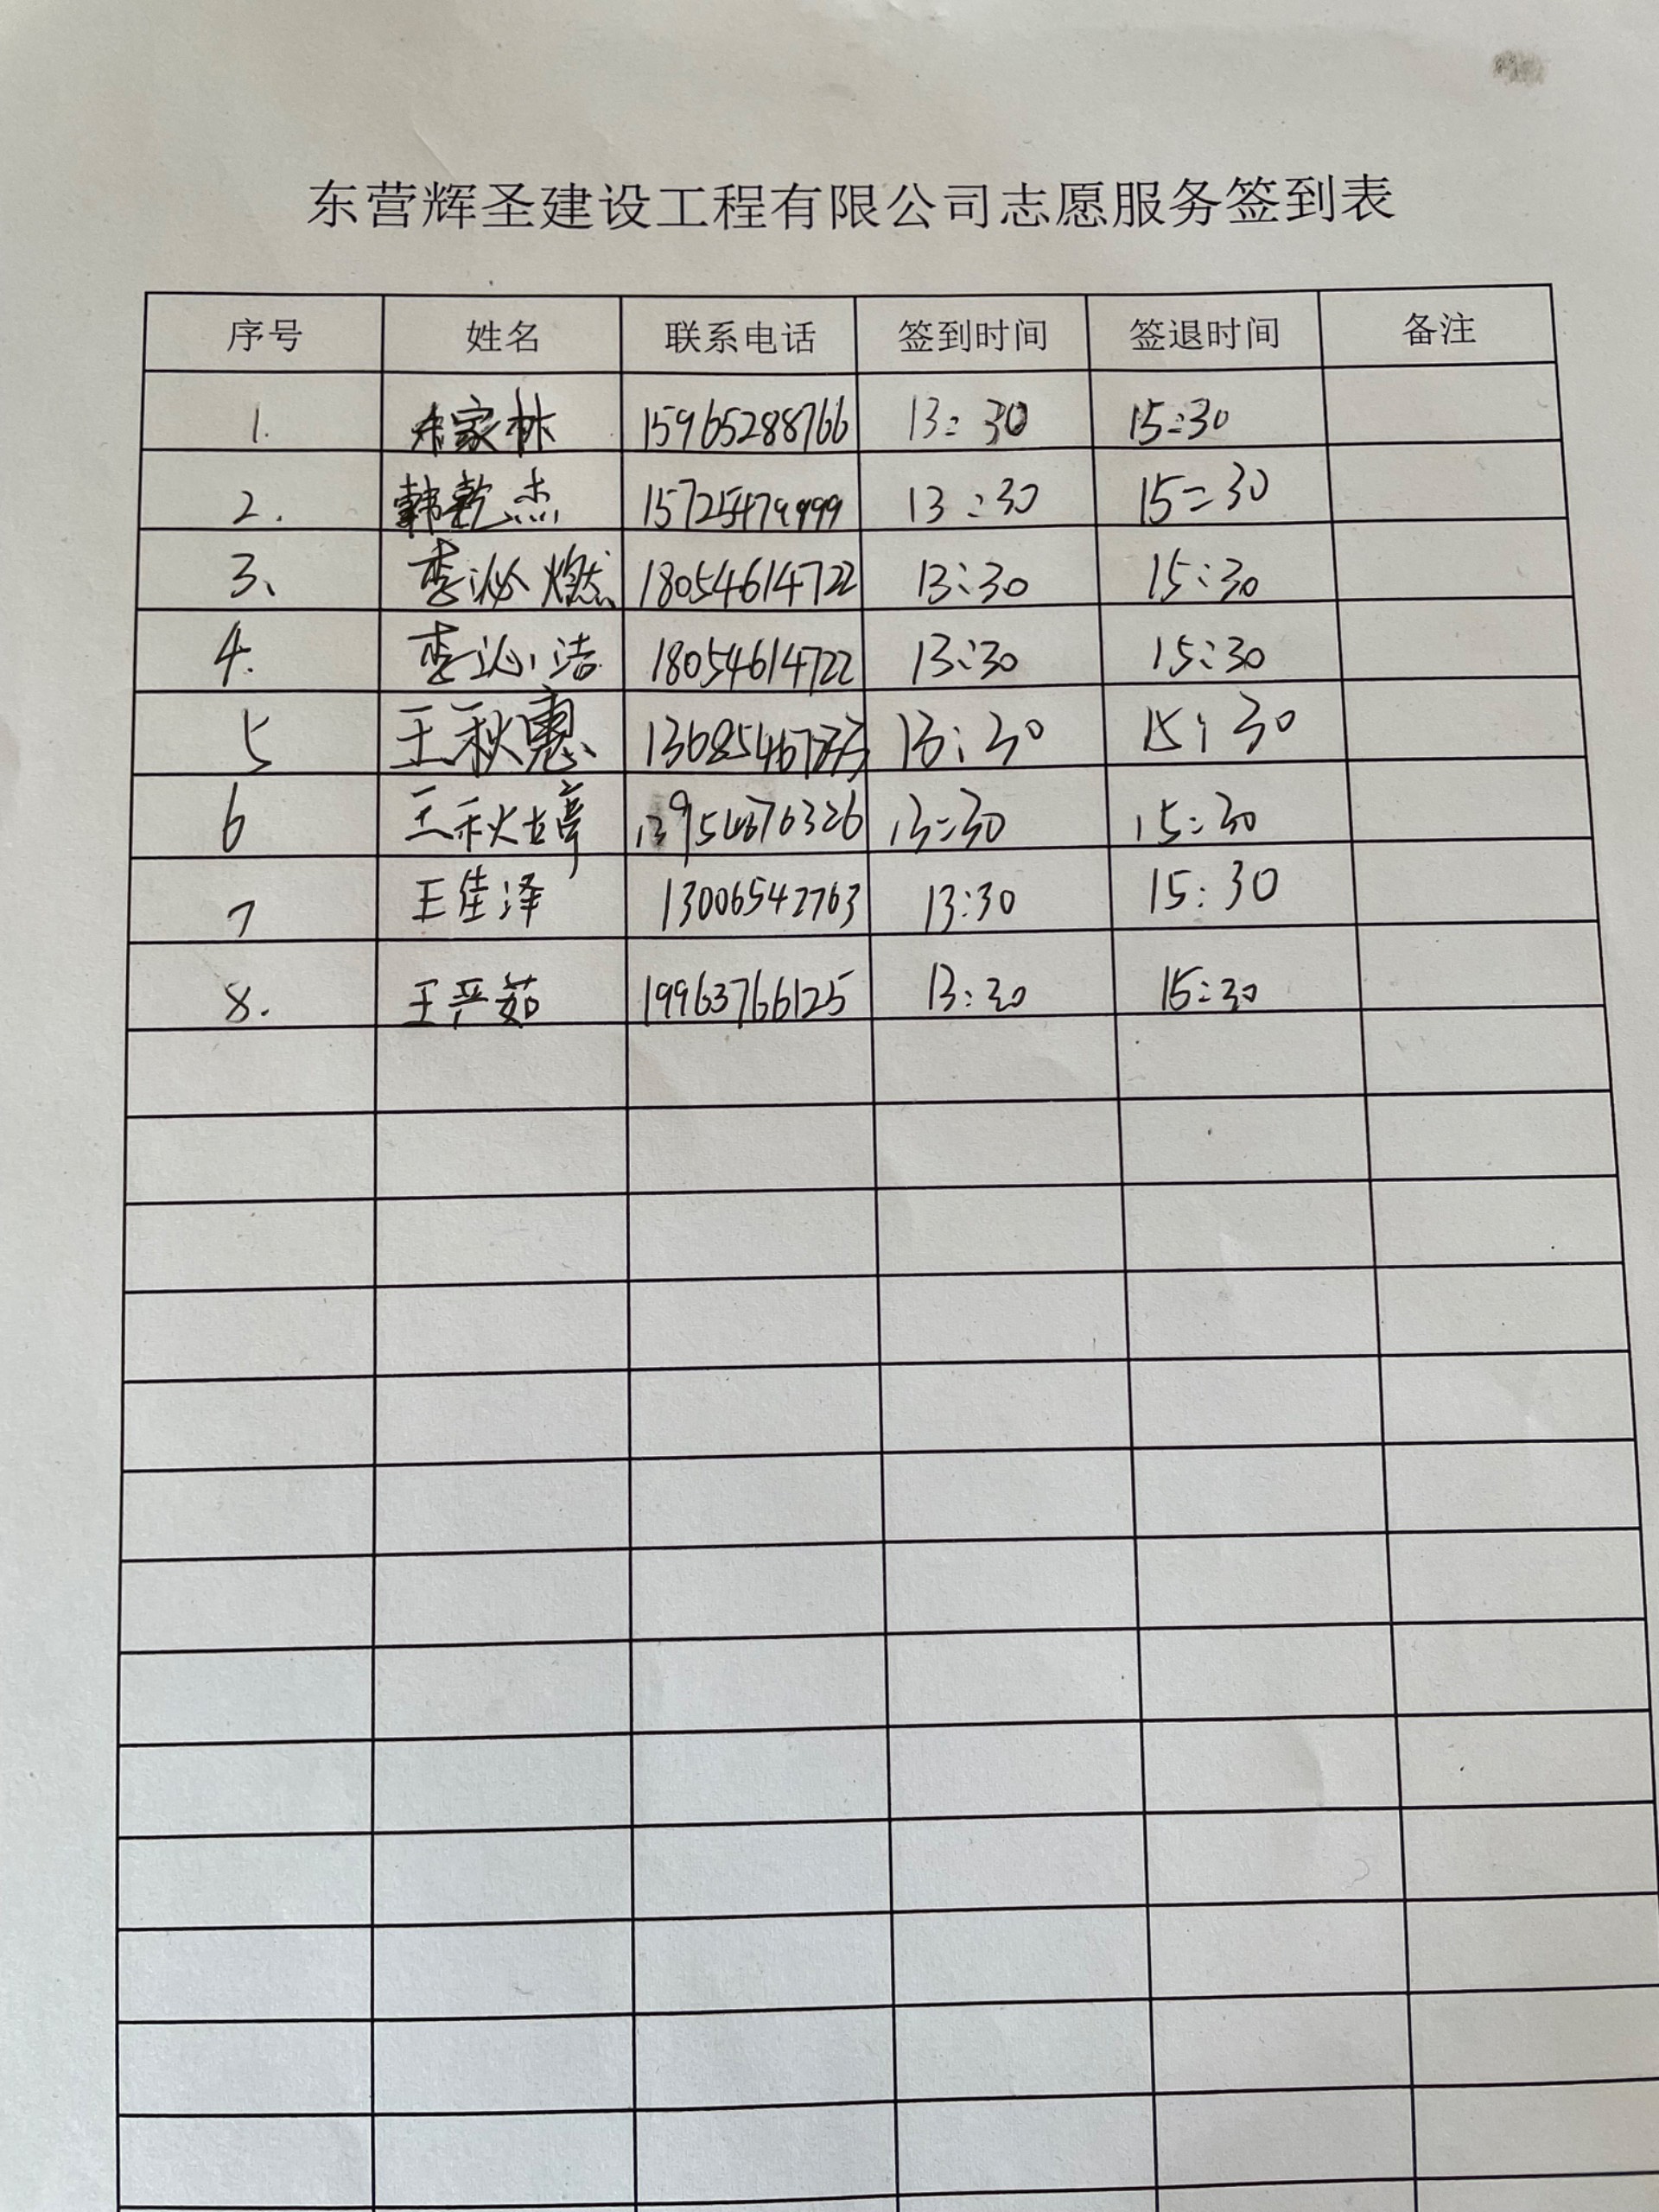 东营辉圣建设工程有限公司志愿服务签到表
序号 姓名 联系电话 签到时间 签退时间 备注
1. 家林 15965288766 13:30 15:30
2. 韩乾杰 15725479999 13:30 15:30
3、 李泌燃 18054614722 13:30 15:30
4. 李沁洁 18054614722 13:30 15:30
5 王秋惠 13:30 15:30
6 王秋婷 13954676326 13:30 15:30
7 王佳泽 13006542763 13:30 15:30
8. 王严茹 19963766125 13:30 15:30